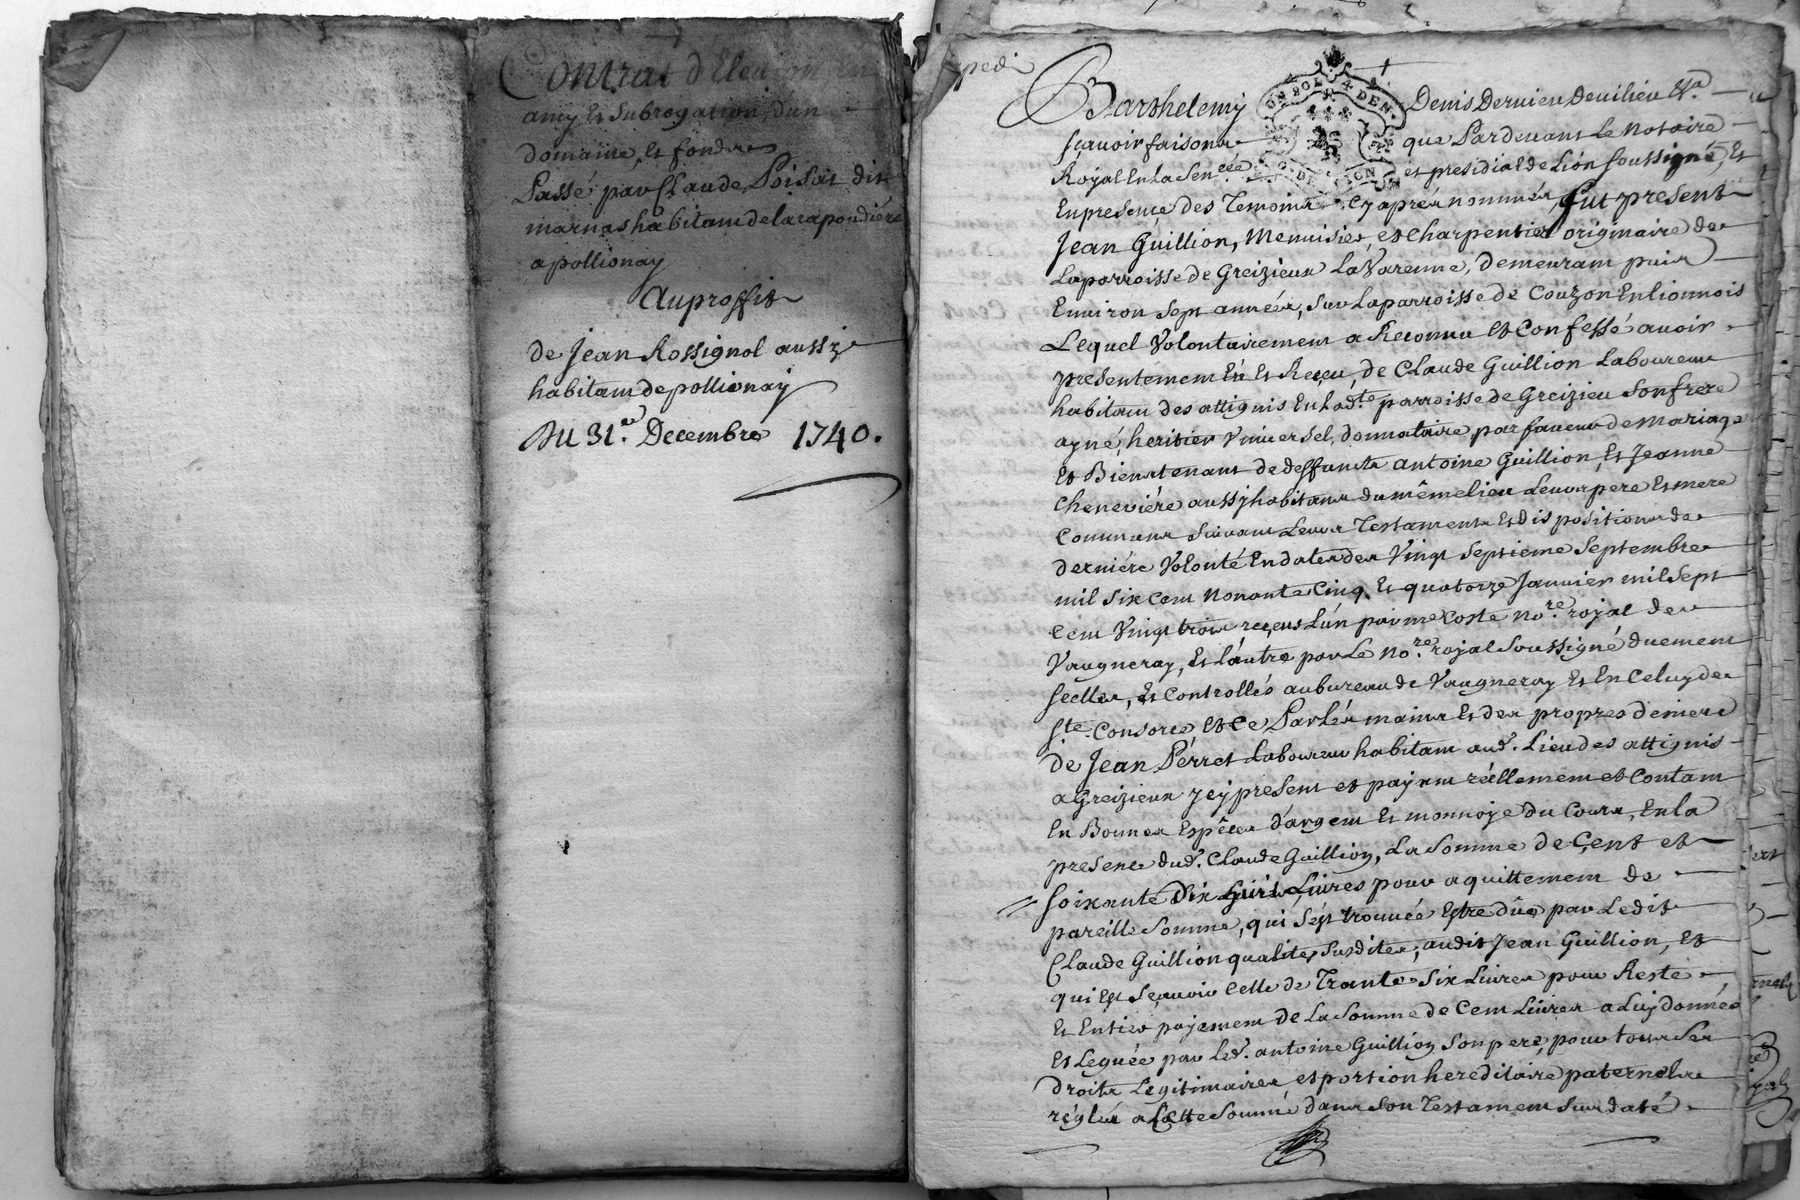 Contrat d'Election en
amy et subrogation, d'un
domaine, et fonds
Passé par Claude Poisat dit
marnas habitant de la rapoudiére
a pollionay
Au proffit
de Jean Rossignol aussy
habitant de pollionay
Du 31.e Decembre 1740.
expedié
Barthelemy Denis Dervieu Devilieu &a.
sçavoir faisons que Pardevant Le Notaire
Royal En la Sencée et presidial de Lion soussigné, Et
En presence des Temoins cy aprés nommés, fut present
Jean Guillion, Menuisier, et charpentier originaire de
La parroisse de Greizieux La Varenne, demeurant puis
Environ sept années, sur La parroisse de Couzon En lionnois
Lequel Volontairement a Reconnu et Confessé avoir
presentement Eü et Reçeu, de Claude Guillion Laboureur
habitant des attignis En Lad.te parroisse de Greizieu son frere
ayné, heritier Universel, donnataire par faveur de Mariage
Et Biens tenant de deffuncts antoine Guillion, Et Jeanne
Cheneviére aussy habitans du même lieu Leurs pere Et mere
Communs suivant Leurs Testaments Et dispositions de
derniére Volonté En datte des Vingt septieme septembre
mil six cent nonante Cinq, Et quatorze Janvier mil sept
Cent Vingt trois reçeus L'un par me Coste no.re royal de
Vaugneray, Et L'autre par Le no.re royal soussigné duement
scellés, Et Controllés au bureau de Vaugneray Et En Celuy de
ste. Consorce, Et Ce Par Lés mains Et des propres deniers
de Jean Perret Laboureur habitant aud. Lieu des attignis
a Greizieux Icy present et payant réellement et Contant
En Bonnes Espêces d'argent Et monnoye du Cours, En la
presence dud. Claude Guillion, La somme de Cent et
soixante Dix huit Livres pour aquittement de
pareille somme, qui s'est trouvée Estre dûe par Ledit
Claude Guillion qualités susdites, audit Jean Guillion, Et
qui Est sçavoir Celle de Trante six Livres pour Reste
Et Entier payement de La somme de Cent Livres a Luy donnée
Et Leguée par Led. antoine Guillion son pere, pour tous ses
droits Legitimaires et portion hereditaire paternels
réglés a Cette somme dans son Testament sus daté